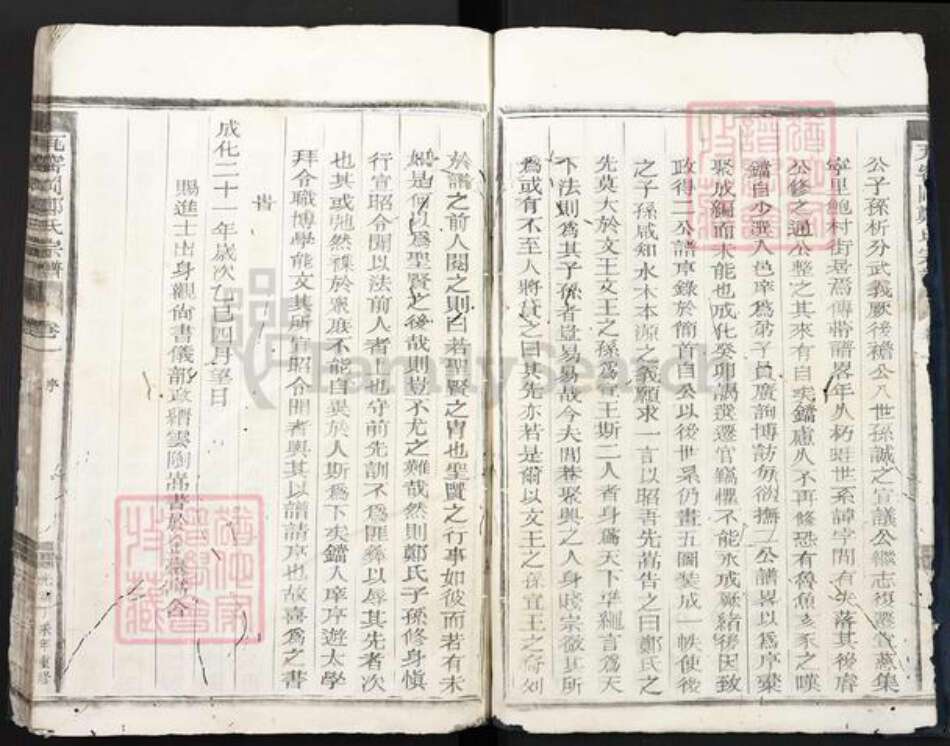 公子孫析分武義厥後襜公八世孫誠之宣議公繼志復遷宣慈集
寧里鮑村街居焉傳帶譜畧年久朽蛀世系諱字間有失落其後睿
公修之通公整之其來有自矣鐺慮久不再修恐有魯魚亥豕之嘆
鐺自少選入邑庠為弟子員廣詢博訪每欲撫二公譜畧以為序彙
聚成編而未能也成化癸卯謁選遷官鎬懼不能承戒厥緒後因致
政得二公譜序錄於簡首自公以後世系仍畫五圖裝成一帙使後
之子孫咸知水木本源之義願求一言以昭吾先嵩告之曰鄭氏之
先莫大於文王文王之孫為宣王斯二人者身為天下準繩言為天
下法則為其子孫者豈易易哉今夫閭巷聚興之人身賤宗微其所
為或有不至人將貸之曰其先亦若是爾以文王之孫宣王之裔列
於譜之前人閱之則曰若聖賢之冑也聖賢之行事如彼而若有未
媿是何以為聖賢之後哉則豈不尤之難哉然則鄭氏子孫修身慎
行宣昭令聞以法前人者上也守前先訓不為匪彝以辱其先者次
也其或弛然雜於眾庶不能自異於人斯為下矣鐺人庠序遊太學
拜令職博學能文其所宣昭令聞者與其以譜請序也故喜為之書
旹
成化二十一年歲次乙巳四月望日
賜進士出身觀尚書儀部政縉雲陶嵩書於
瓦窑岡鄭氏宗譜
卷一
序
光緒丁未年重修